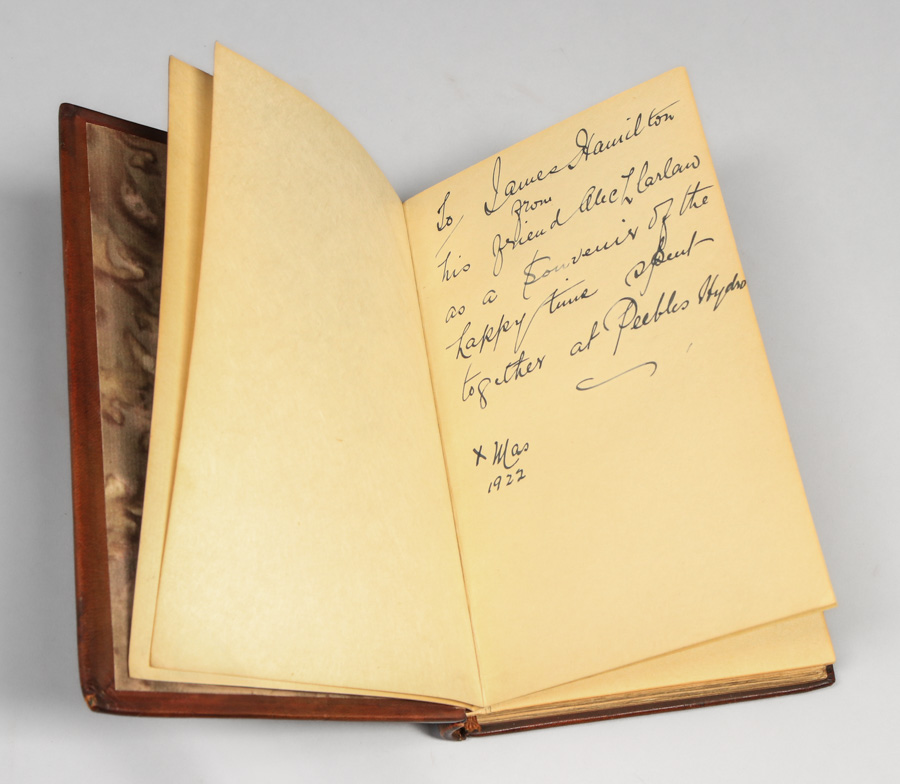 To James Hamilton
from
his friend Alec Harlaw
as a Souvenir of the
happy time spent
together at Peebles Hydro
X Mas
1922